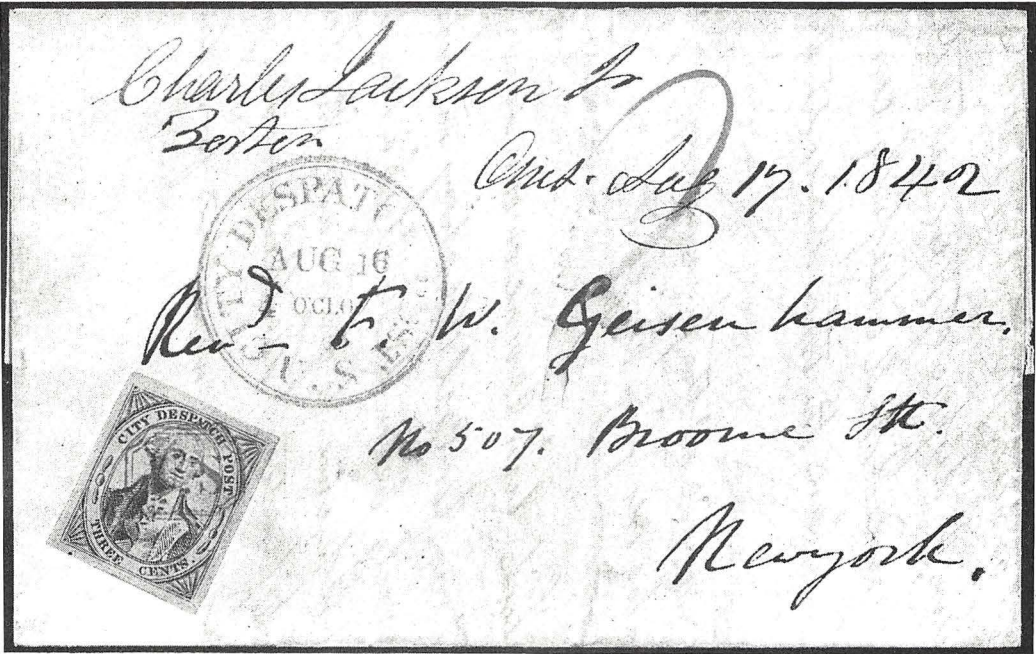 Charles Jackson Jr
Boston
Ans. Aug 17. 1842
CITY DESPATCH
AUG 16
4 O'CLO
Revd F. W. Geisenhammer.
No 507. Broome Stt.
Newyork.
CITY DESPATCH POST
THREE CENTS.